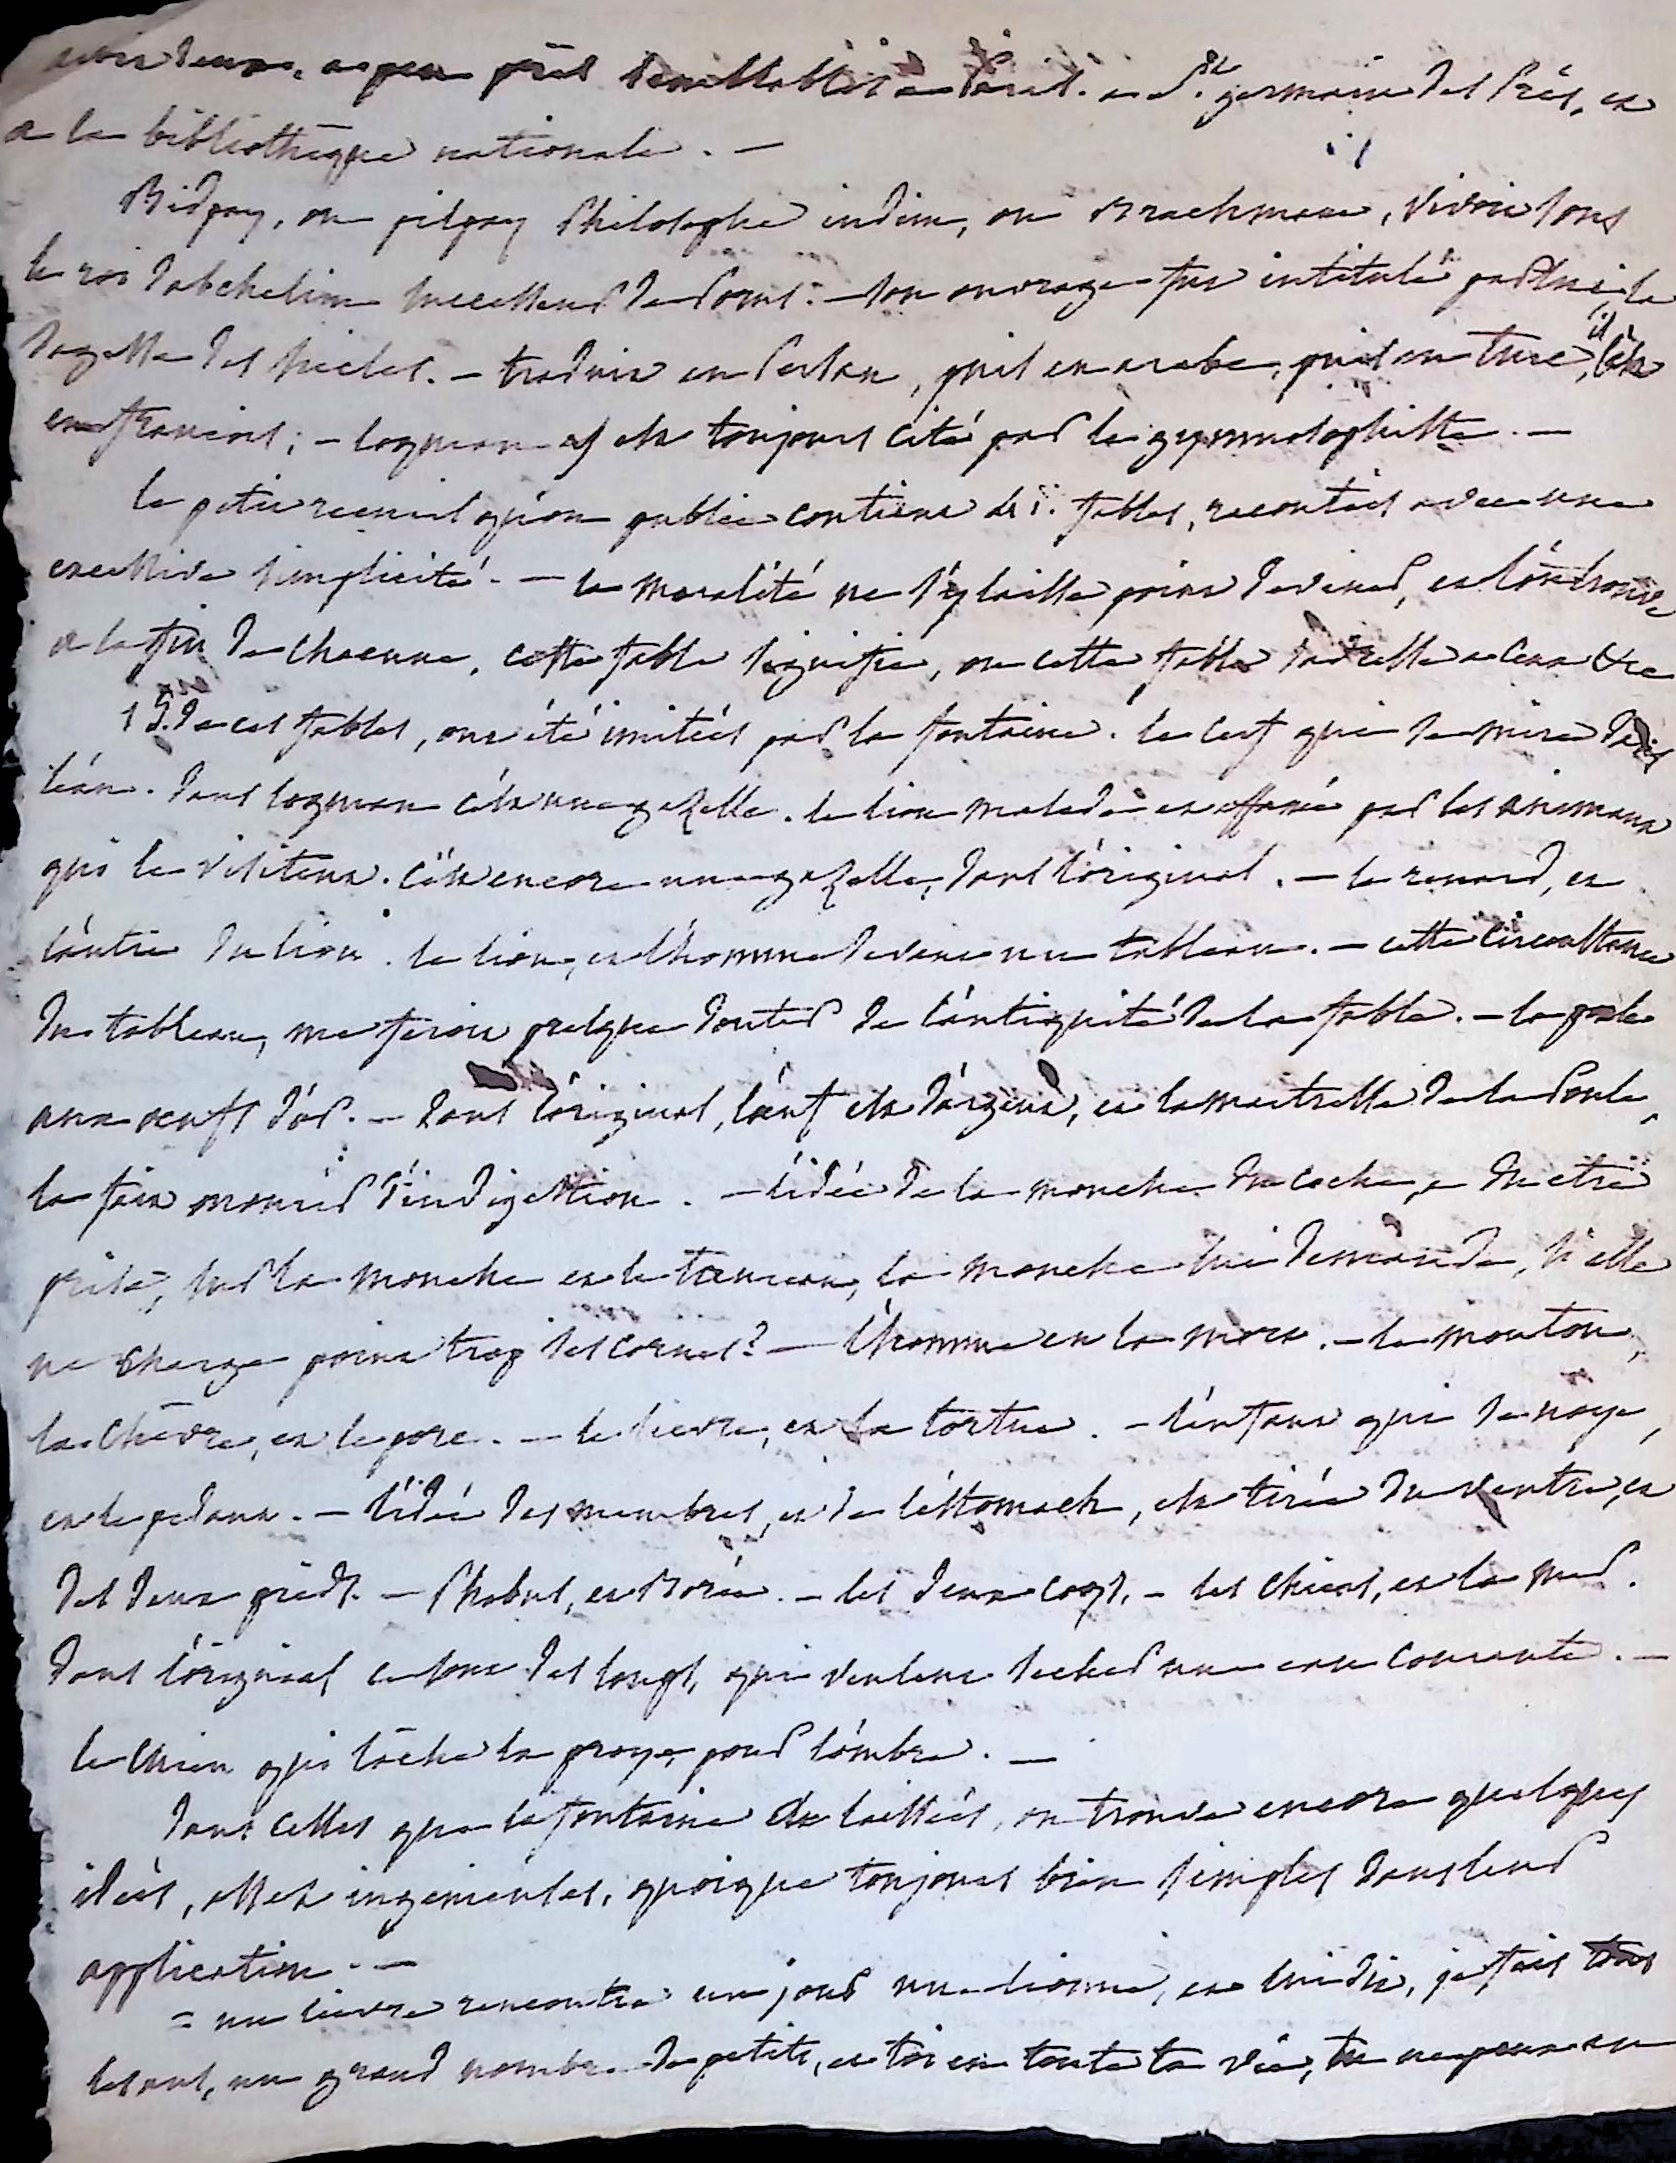 deux, a peu près semblables a Paris. a St. germain des Prés, et
a la bibliothèque nationale. —
Bidpay, ou pilpay philosophe indien, ou Brachmane, vivoit sous
le roi dabchelim successeur de Porus. — son ouvrage fut intitulé par lui, la
sagesse des siècles. — traduit en Persan, puis en arabe, puis en turc, il l'est
en françois; — loqman y est toujours cité par le gymnosophiste. —
le petit recueil qu'on publie contient 41. fables, racontées avec une
excessive simplicité. — la moralité ne s'y laisse point deviner, et l'on trouve
a la fin de chacune, cette fable signifie, ou cette fable s'adresse a ceux &c
15. de ces fables, ont été imitées par la fontaine. le cerf qui se mire dans
l'eau. dans loqman c'est une gazelle. le lion malade et affamé par les animaux
qui le visitent. c'est encore une gazelle, dans l'original. — le renard, et
l'antre du lion. le lion, et l'homme devant un tableau. — cette circonstance
du tableau, me feroit presque douter de l'antiquité de la fable. — la poule
aux oeufs d'or. — dans l'original, l'oeuf est d'argent, et la maitresse de la Poule,
la fait mourir d'indigestion. — l'idée de la mouche du coche, a du etre
prise, sur la mouche et le taureau, la mouche lui demande, si elle
ne charge point trop ses cornes? — l'homme et la mort. — le mouton,
la chèvre, et le porc. — le lievre, et la tortue. — l'enfant qui se noye,
et le pedant. — l'idée des membres, et de l'estomach, est tirée du ventre, et
des deux pieds. — Phebus, et Borée. — les deux coqs. — les chiens, et la mer.
dans l'original ce sont des loups, qui veulent secher une eau courante. —
le chien qui lâche la proye, pour l'ombre. —
dans celles que la fontaine a laissées, on trouve encore quelques
idées, assez ingenieuses, quoique toujours bien simples dans leur
application. —
= un lievre rencontra un jour une lionne, et lui dit, je fais tous
les ans, un grand nombre de petits, et toi en toute ta vie, tu ne peux en